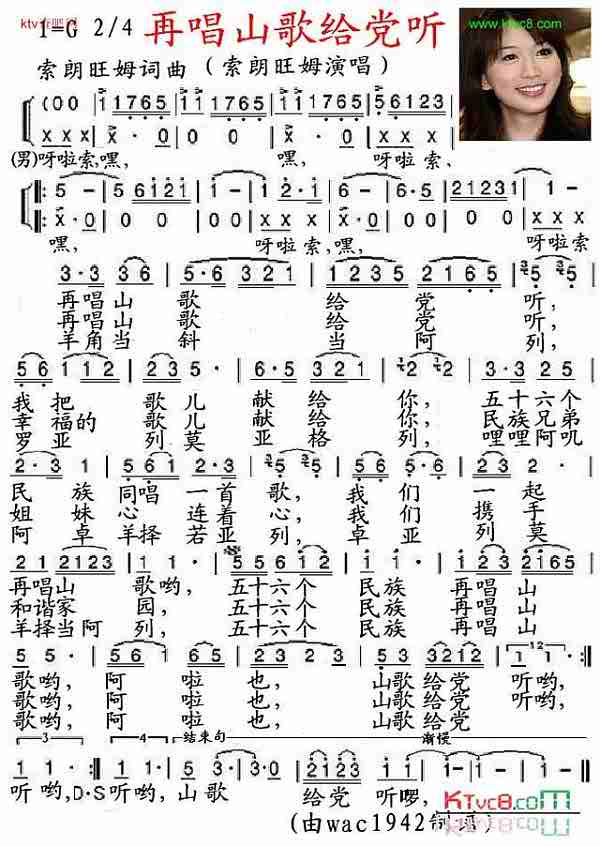 ktv伴吧网
www.ktvc8.com
1=G 2/4 再唱山歌给党听
索朗旺姆词曲（索朗旺姆演唱）
(00 | i 1765 | i i 1765 | i i 1765 | 56123
x x x | x · 0 | 0 0 | x · 0 | x x x
(男)呀啦索,嘿, 嘿, 呀啦索、
5 - | 5 6121 | 1 - | 1 2·1 | 6 - | 6·5 | 21231 | 1 -)
x · 0 | 0 0 | x x x | x · 0 | 0 0 | 0 0 | x x x
嘿, 呀啦索,嘿, 呀啦索
3·3 36 | 5·6 321 | 1 235 | 2·1 65 | 5 5
再唱山歌 给党听,
再唱山歌 给党听,
羊角当斜 当阿列,
56 112 | 235 | 2·3 21 | 2 2 | 555 12
我把歌儿献给你, 五十六个
幸福的歌儿献给你, 民族兄弟
罗亚列莫亚格列, 哩哩阿叽
2·3 1 | 5·6 561 | 2·3 | 5 5 | 5·6 1 2 | 2·3 1
民族同唱一首歌,我们一起
姐妹心连着心,我们携手
阿卓羊择若亚列,卓亚列莫
21 2123 | 1 1· | 556 12 | 1·1 | 123 2165
再唱山歌哟,五十六个民族再唱山
和谐家园,五十六个民族再唱山
羊择当阿列,五十六个民族再唱山
5 5· | 561 65 | 23 3 | 3 23 | 53 3212 | 1 1· :||
歌哟,阿啦也,山歌给党听哟,
歌哟,阿啦也,山歌给党听哟,
歌哟,阿啦也,山歌给党听哟,
3 4 结束句 渐慢
1 1· :|| 1 1· | 5·3 | 3·0 | 2123 | 1 1· | 1 - | 1 - ||
听哟,D·S听哟,山歌 给党听啰,
KTvc8.com
(由wac1942制谱)